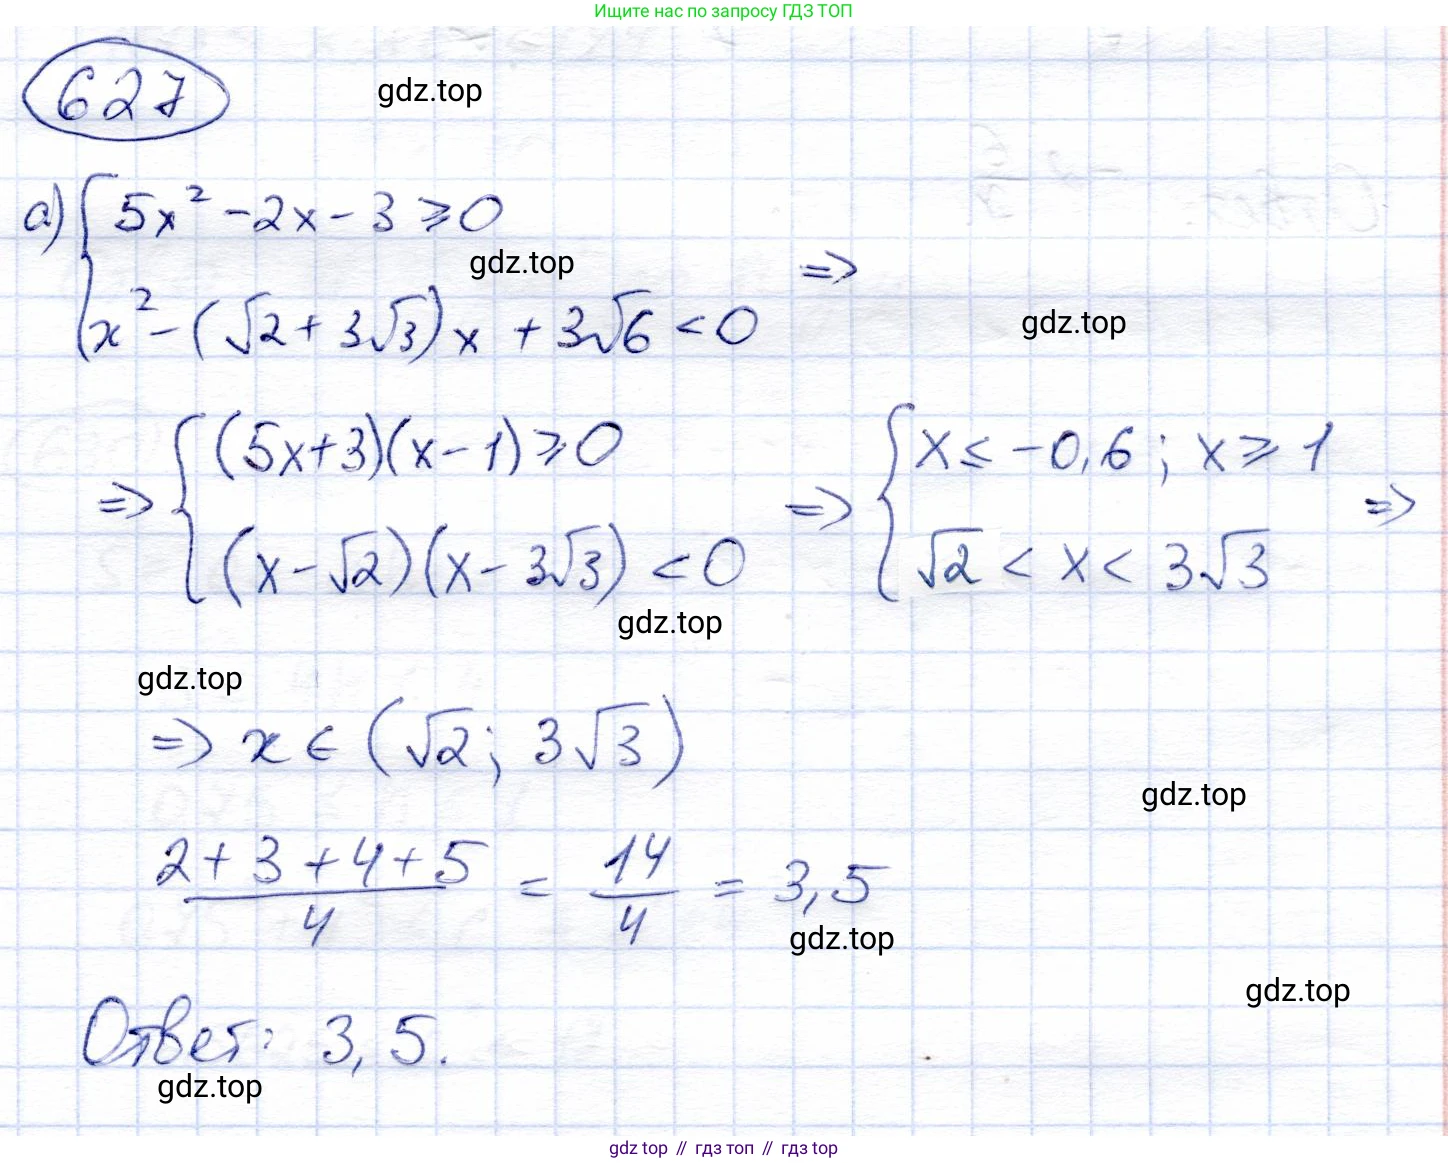 Ищите нас по запросу ГДЗ ТОП
627
gdz.top
а) { 5x² - 2x - 3 ⩾ 0
gdz.top
x² - (√2 + 3√3)x + 3√6 < 0 =>
gdz.top
=> { (5x+3)(x-1) ⩾ 0 => { x ≤ -0,6 ; x ⩾ 1 =>
(x-√2)(x-3√3) < 0 √2 < x < 3√3
gdz.top
gdz.top
=> x ∈ (√2; 3√3)
gdz.top
(2+3+4+5)/4 = 14/4 = 3,5
gdz.top
gdz.top
Ответ: 3,5.
gdz.top
gdz top // гдз топ // гдз top